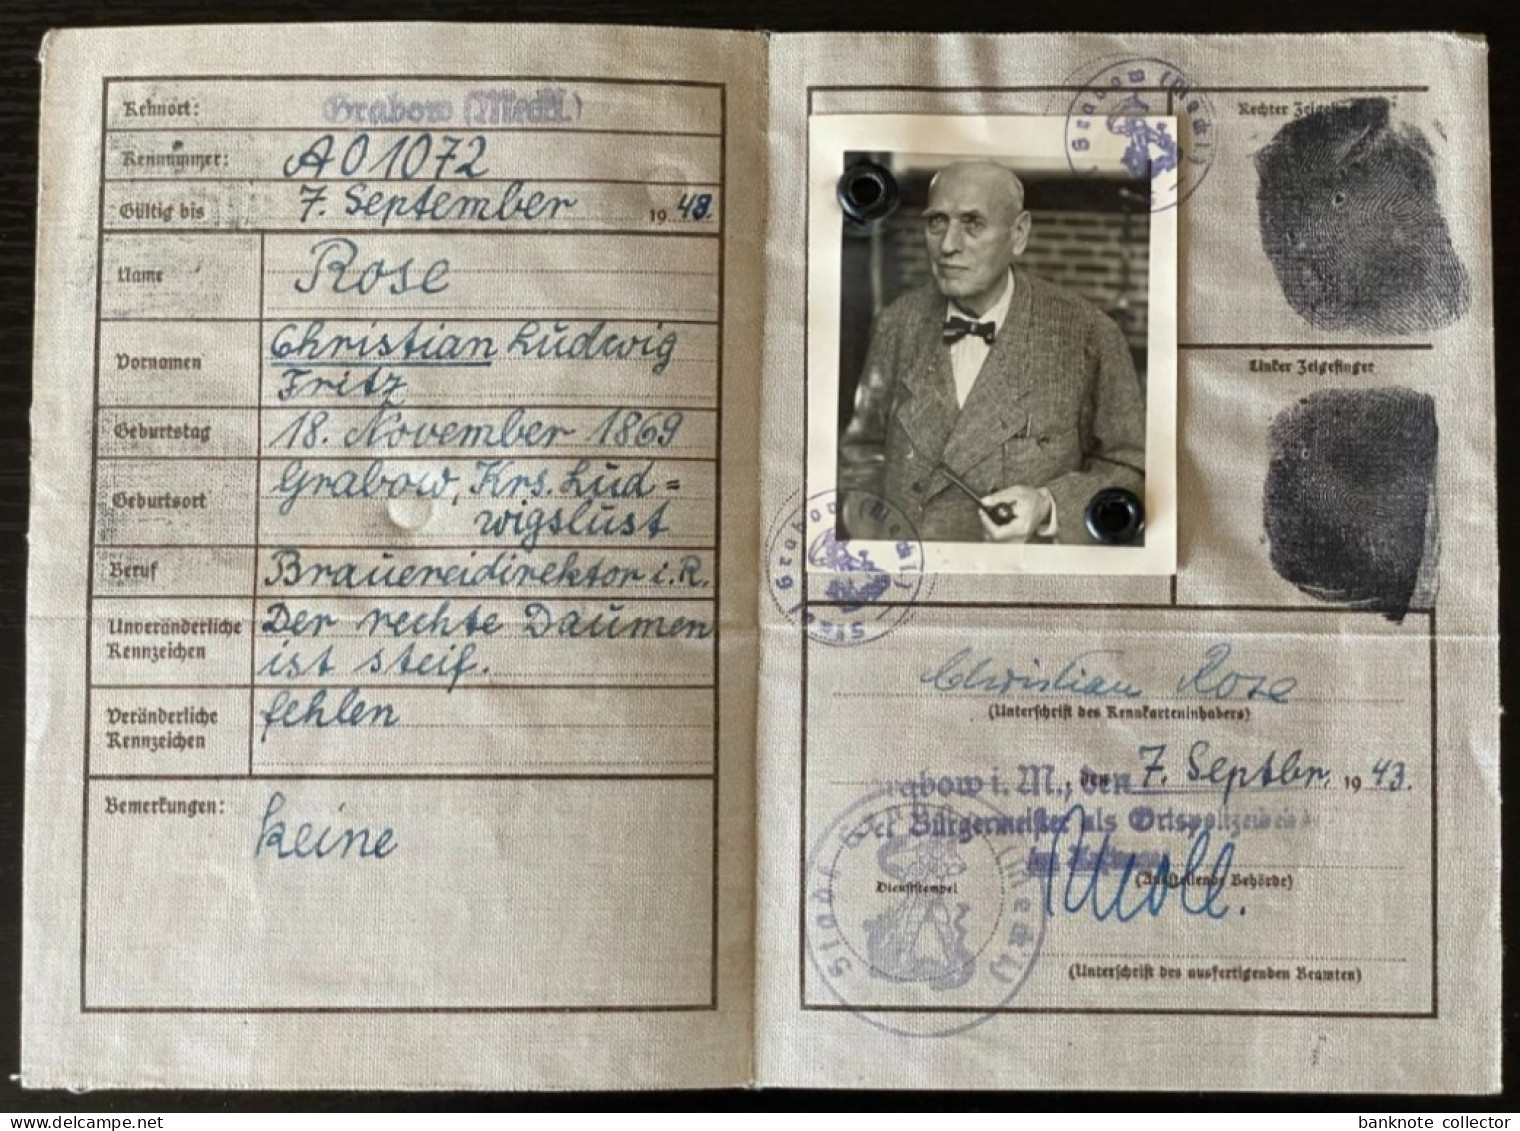 Kennort: Grabow (Meckl.)
Kennummer: A01072
Gültig bis 7. September 1948.
Name Rose
Vornamen Christian Ludwig
Fritz
Geburtstag 18. November 1869
Geburtsort Grabow, Krs. Lud=
wigslust
Beruf Brauereidirektor i. R.
Unveränderliche Kennzeichen Der rechte Daumen
ist steif.
Veränderliche Kennzeichen fehlen
Bemerkungen: keine
Stadt Grabow (Meckl)
Rechter Zeigefinger
Linker Zeigefinger
Stadt Grabow (Meckl)
Christian Rose
(Unterschrift des Kennkarteninhabers)
Grabow i. M., den 7. Septbr. 1943.
Der Bürgermeister als Ortspolizei
(Ausstellende Behörde)
Dienststempel
Stadt Grabow (Meckl)
(Unterschrift des ausfertigenden Beamten)
banknote collector